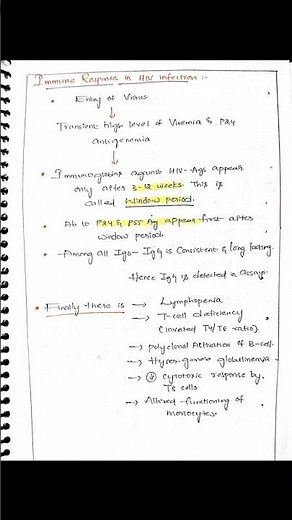 Immune Response in HIV Infection :-
• Entry of Virus
↓
→ Transient high level of Viremia & P24
antigenemia
↓
• Immunoglobins against HIV-Ags appear
only after 3-12 weeks. This is
called Window period.
• Ab to P24 & P55 Ag appear first after
window period.
- Among all Igs - IgG is Consistent & long lasting.
Hence IgG is detected in Assays
• Finally there is → Lymphopenia
→ T-cell deficiency
(inverted T4/T8 ratio)
→ polyclonal Activation of B-cell.
→ Hyper-gamma globulinemia
→ ↓ cytotoxic response by
T8 cells
→ Altered functioning of
monocytes.